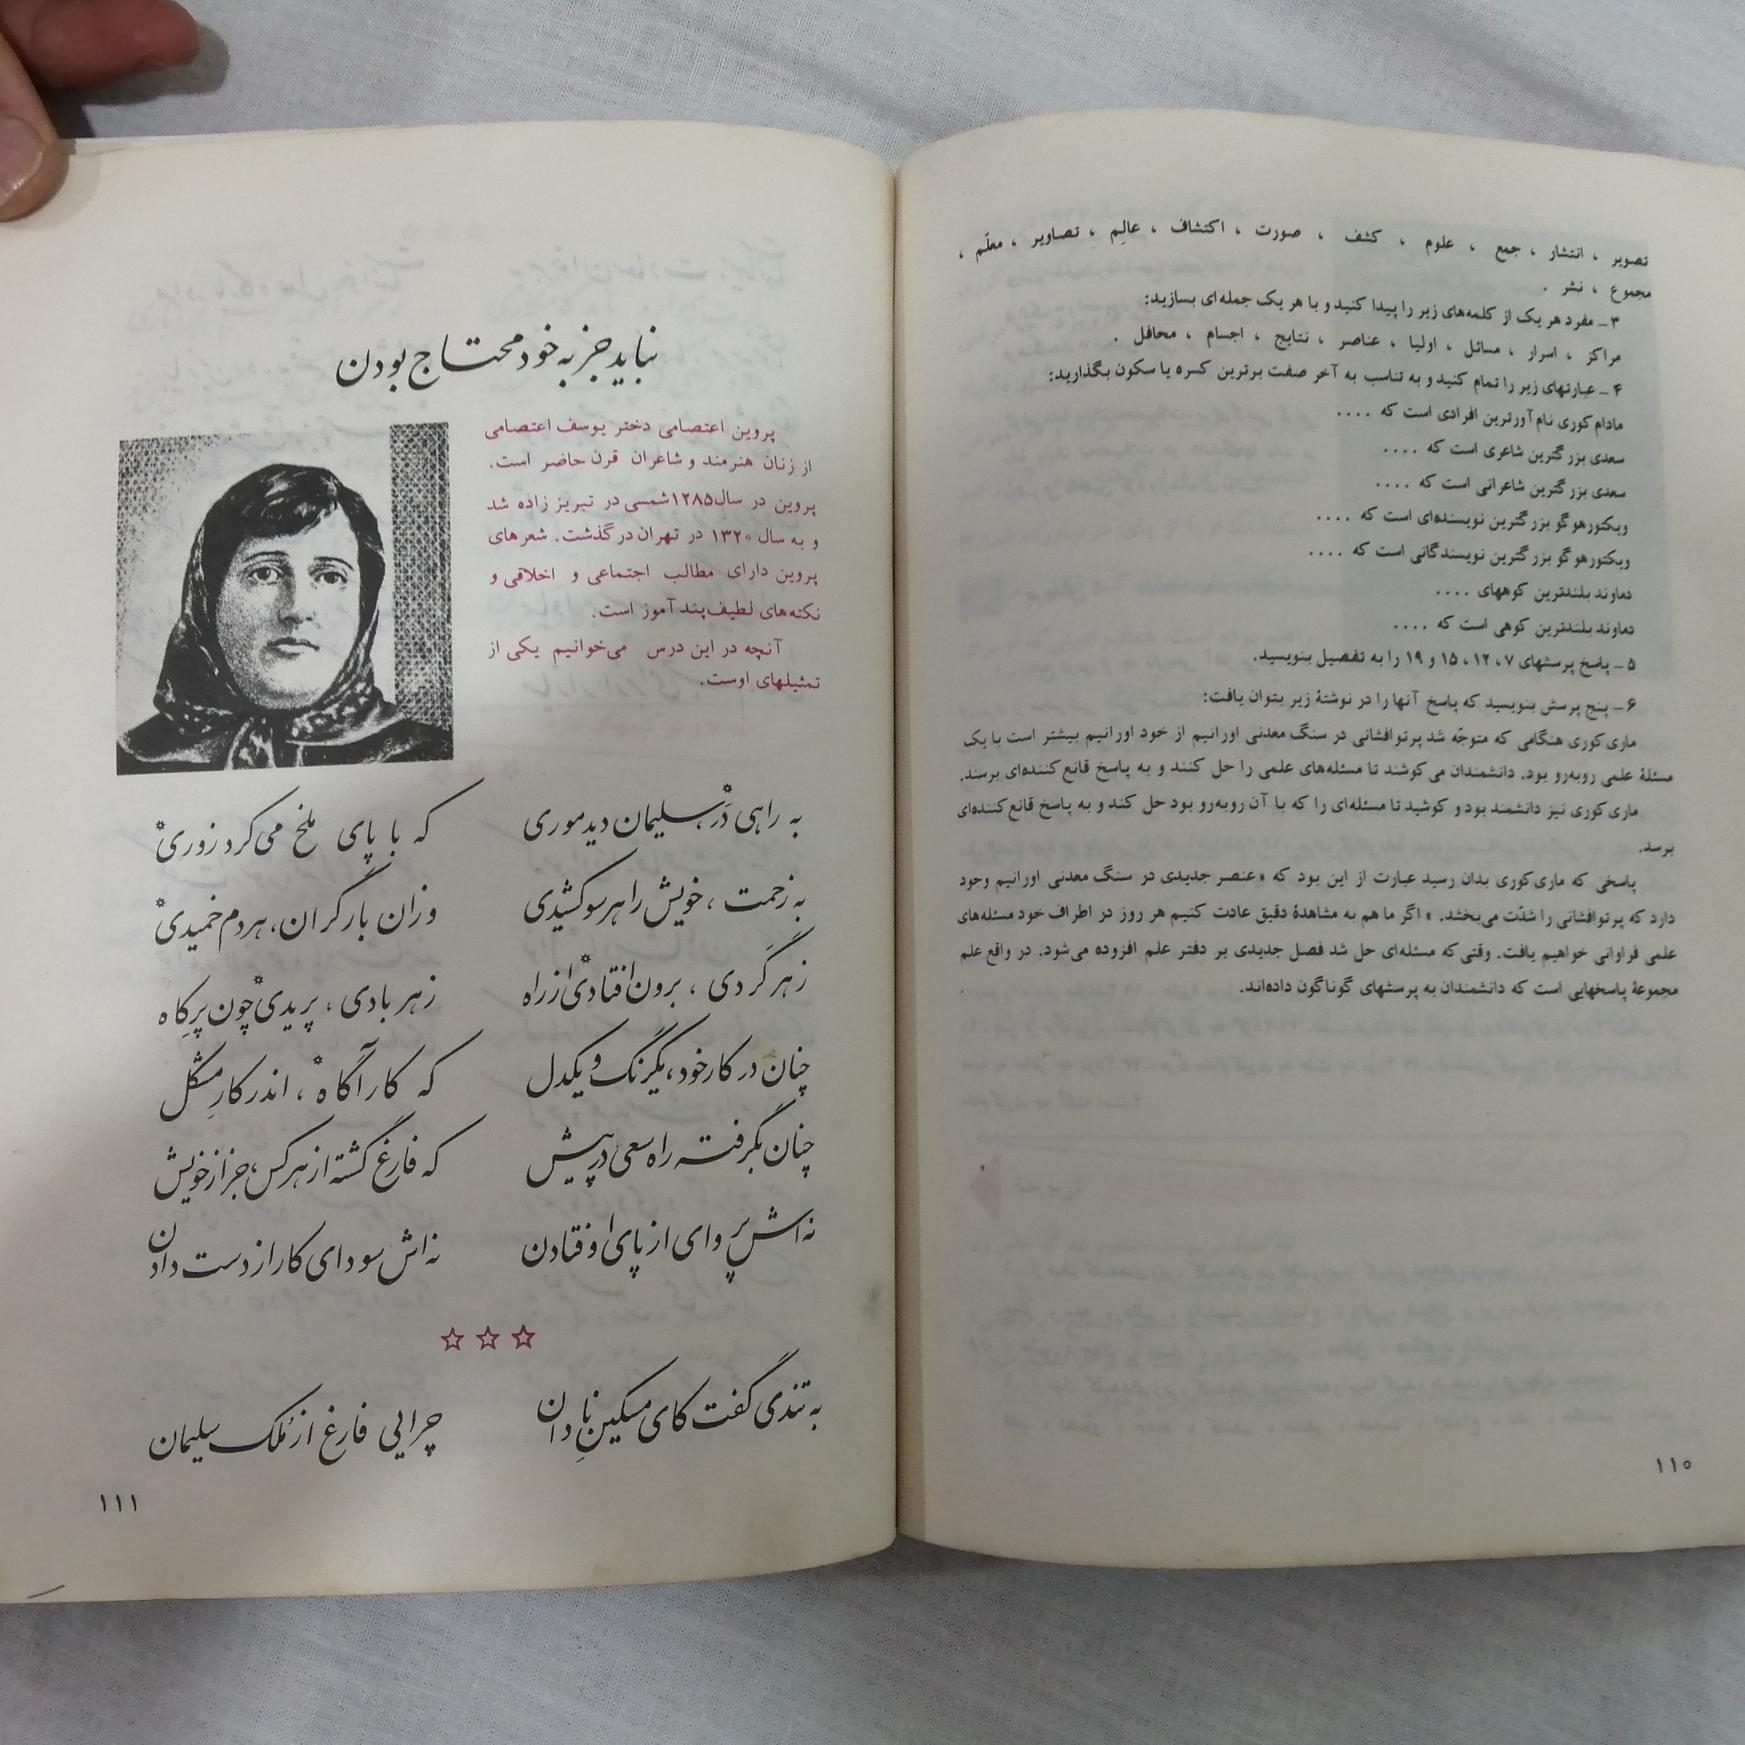 تصویر ، انتشار ، جمع ، علوم ، کشف ، صورت ، اکتشاف ، عالِم ، تصاویر ، معلّم ،
مجموع ، نشر .
۳ـ مفرد هر یک از کلمه‌های زیر را پیدا کنید و با هر یک جمله‌ای بسازید:
مراکز ، اسرار ، مسائل ، اولیا ، عناصر ، نتایج ، اجسام ، محافل .
۴ـ عبارتهای زیر را تمام کنید و به تناسب به آخر صفت برترین کسره یا سکون بگذارید:
مادام کوری نام‌آورترین افرادی است که ....
سعدی بزرگترین شاعری است که ....
سعدی بزرگترین شاعرانی است که ....
ویکتورهوگو بزرگترین نویسنده‌ای است که ....
ویکتورهوگو بزرگترین نویسندگانی است که ....
دماوند بلندترین کوههای ....
دماوند بلندترین کوهی است که ....
۵ـ پاسخ پرسشهای ۷، ۱۲، ۱۵ و ۱۹ را به تفصیل بنویسید.
۶ـ پنج پرسش بنویسید که پاسخ آنها را در نوشتهٔ زیر بتوان یافت:
ماری کوری هنگامی که متوجّه شد پرتوافشانی در سنگ معدنی اورانیم از خود اورانیم بیشتر است با یک
مسئلهٔ علمی روبه‌رو بود. دانشمندان می‌کوشند تا مسئله‌های علمی را حل کنند و به پاسخ قانع‌کننده‌ای برسند.
ماری کوری نیز دانشمند بود و کوشید تا مسئله‌ای را که با آن روبه‌رو بود حل کند و به پاسخ قانع‌کننده‌ای
برسد.
پاسخی که ماری کوری بدان رسید عبارت از این بود که «عنصر جدیدی در سنگ معدنی اورانیم وجود
دارد که پرتوافشانی را شدّت می‌بخشد.» اگر ما هم به مشاهدهٔ دقیق عادت کنیم هر روز در اطراف خود مسئله‌های
علمی فراوانی خواهیم یافت. وقتی که مسئله‌ای حل شد فصل جدیدی بر دفتر علم افزوده می‌شود. در واقع علم
مجموعهٔ پاسخهایی است که دانشمندان به پرسشهای گوناگون داده‌اند.
۱۱۰
نباید جز به خود محتاج بودن
پروین اعتصامی دختر یوسف اعتصامی
از زنان هنرمند و شاعران قرن حاضر است.
پروین در سال ۱۲۸۵ شمسی در تبریز زاده شد
و به سال ۱۳۲۰ در تهران درگذشت. شعرهای
پروین دارای مطالب اجتماعی و اخلاقی و
نکته‌های لطیف پندآموز است.
آنچه در این درس می‌خوانیم یکی از
تمثیلهای اوست.
به راهی دَر*، سلیمان دید موری که با پای ملخ می‌کرد زوری*
به زحمت، خویش را هر سو کشیدی وزان بار گران، هر دم خمیدی*
ز هر گَردی، برون افتادی* از راه ز هر بادی، پریدی* چون پرِ کاه
چنان در کار خود، یکرنگ و یکدل که کارآگاه*، اندر کارِ مشکل
چنان بگرفته راه سعی در پیش که فارغ گشته از هر کس، جز از خویش
نه‌اش پروای از پای اوفتادن نه‌اش سودای کار از دست دادن
☆ ☆ ☆
به تندی گفت کای مسکینِ نادان چرایی فارغ از مُلک سلیمان
۱۱۱